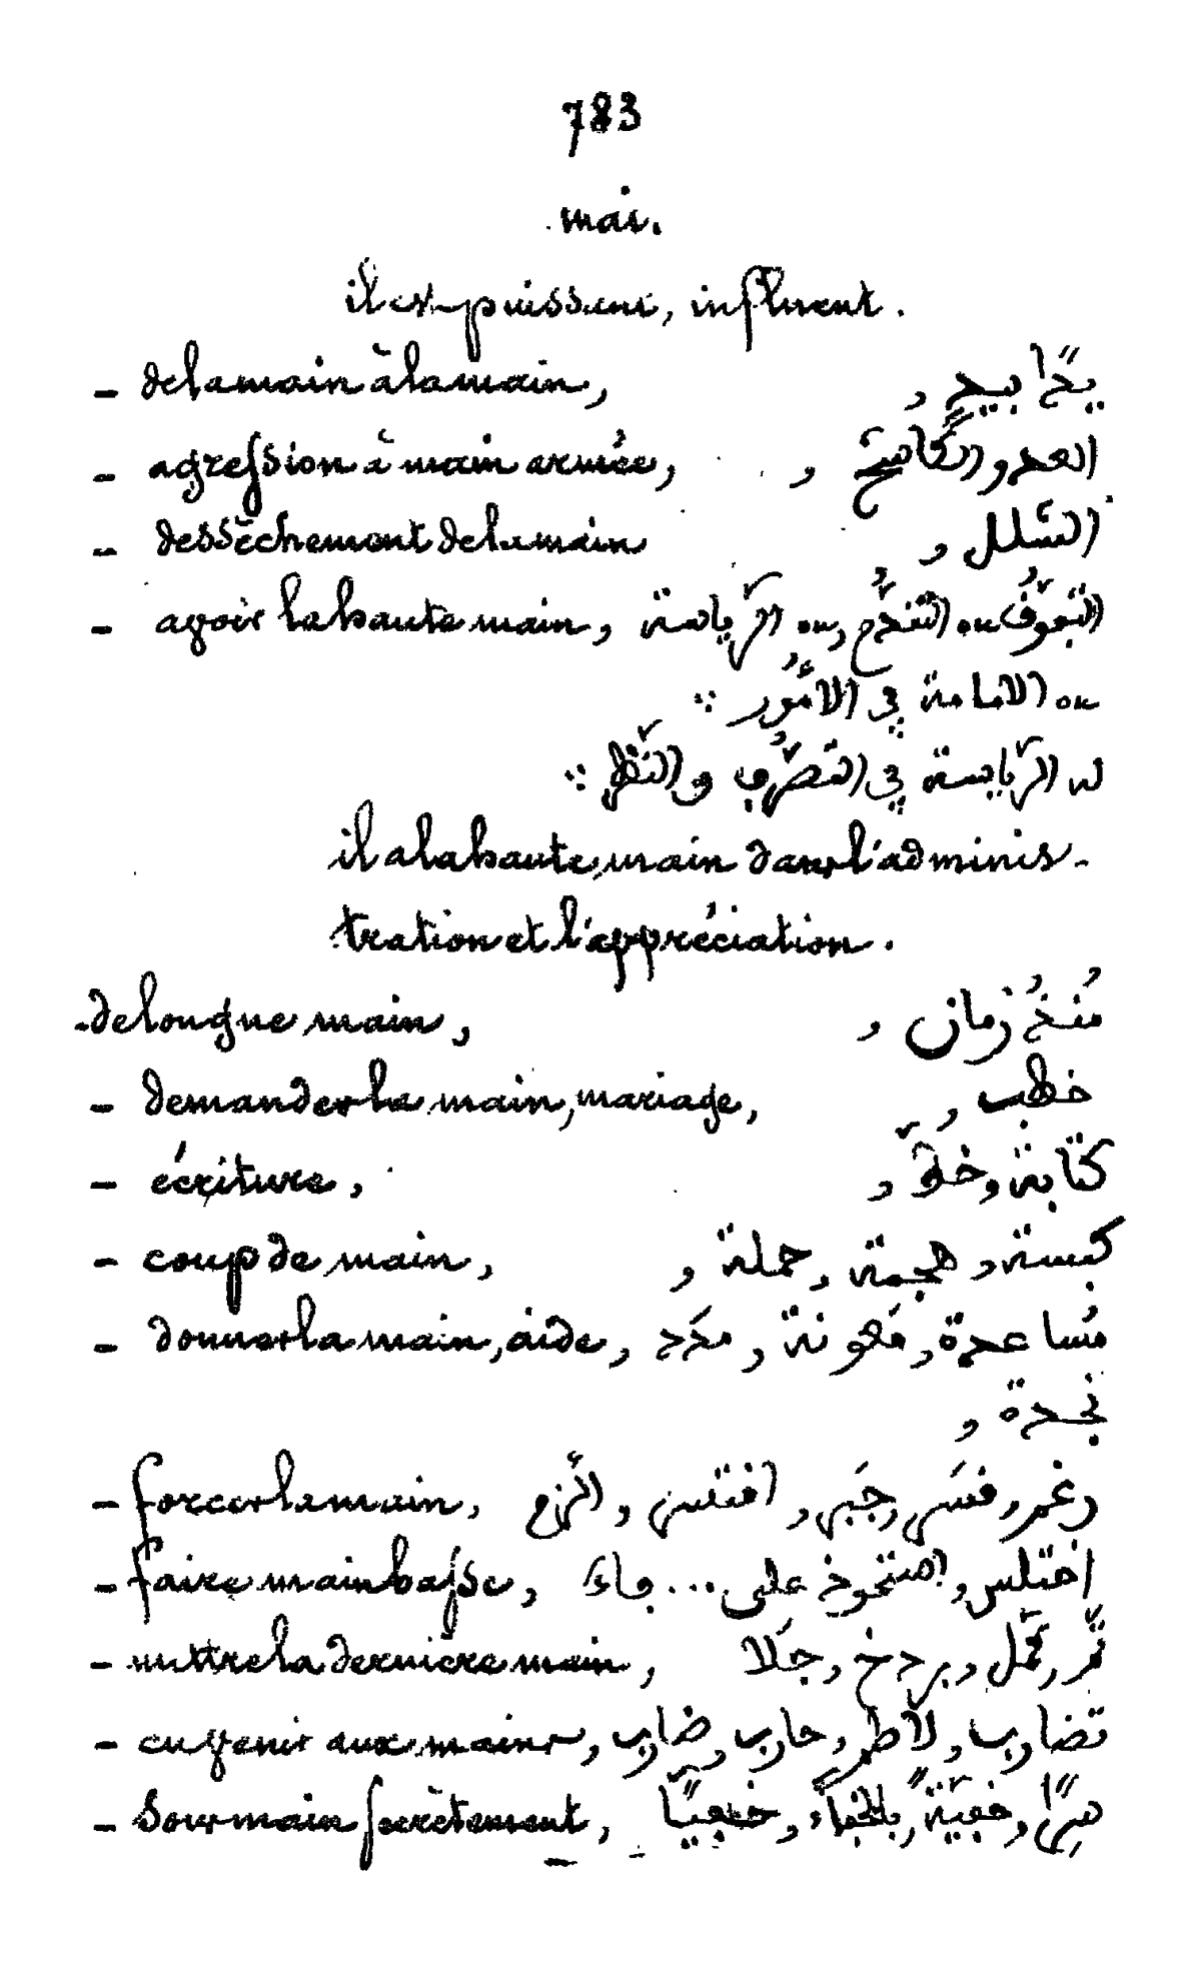 783
mai.
il est puissant, influent.
- de la main à la main, يدًا بيدٍ ,
- agression à main armée, العدو ,
- dessèchement de la main الشلل ,
- avoir la haute main, التصرّف التقدّم الرّياسة
الامامة في الامُور
له الرّياسة في التصرُّف والنّظر
il a la haute main dans l'adminis-
tration et l'appréciation.
- de longue main, مُنذُ زمان ,
- demander la main, mariage, خطب ,
- écriture, كتابة, خطّ ,
- coup de main, كبسة, هجمة, حملة ,
- donner la main, aide, مُساعدة, مَعونة, مدَد ,
نجدة ,
- forcer la main, رغم, قسَر, جَبَر, الزم
- faire main basse, اختلس, استحوذ على ... جاء
- mettre la dernière main, تمّم, كمّل, بردخ, جلا
- en venir aux mains, تضارب, لاطم, حارب, ضارب
- sous main secrètement, سِرًّا, خفيّةً, بالخفاء, خفيًّا